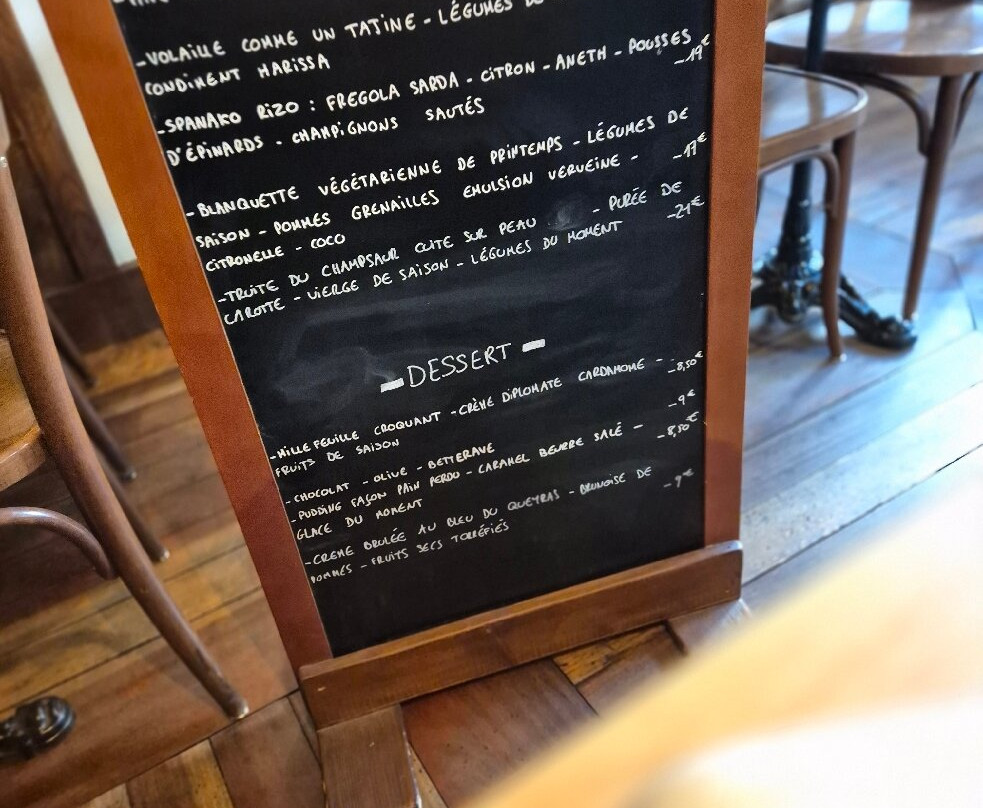 -VOLAILLE COMME UN TAJINE - LÉGUMES
CONDIMENT HARISSA
-SPANAKO RIZO : FREGOLA SARDA - CITRON - ANETH - POUSSES -19€
D'ÉPINARDS - CHAMPIGNONS SAUTÉS
-BLANQUETTE VÉGÉTARIENNE DE PRINTEMPS - LÉGUMES DE -17€
SAISON - POMMES GRENAILLES EMULSION VERVEINE -
CITRONELLE - COCO
-TRUITE DU CHAMPSAUR CUITE SUR PEAU - PURÉE DE -21€
CAROTTE - VIERGE DE SAISON - LÉGUMES DU MOMENT
- DESSERT -
-MILLE FEUILLE CROQUANT - CRÈME DIPLOMATE CARDAMOME - -8,50€
FRUITS DE SAISON
- CHOCOLAT - OLIVE - BETTERAVE -9€
- PUDDING FAÇON PAIN PERDU - CARAMEL BEURRE SALÉ - -8,50€
GLACE DU MOMENT
-CREME BRULÉE AU BLEU DU QUEYRAS - BRUNOISE DE -9€
POMMES - FRUITS SECS TORRÉFIÉS